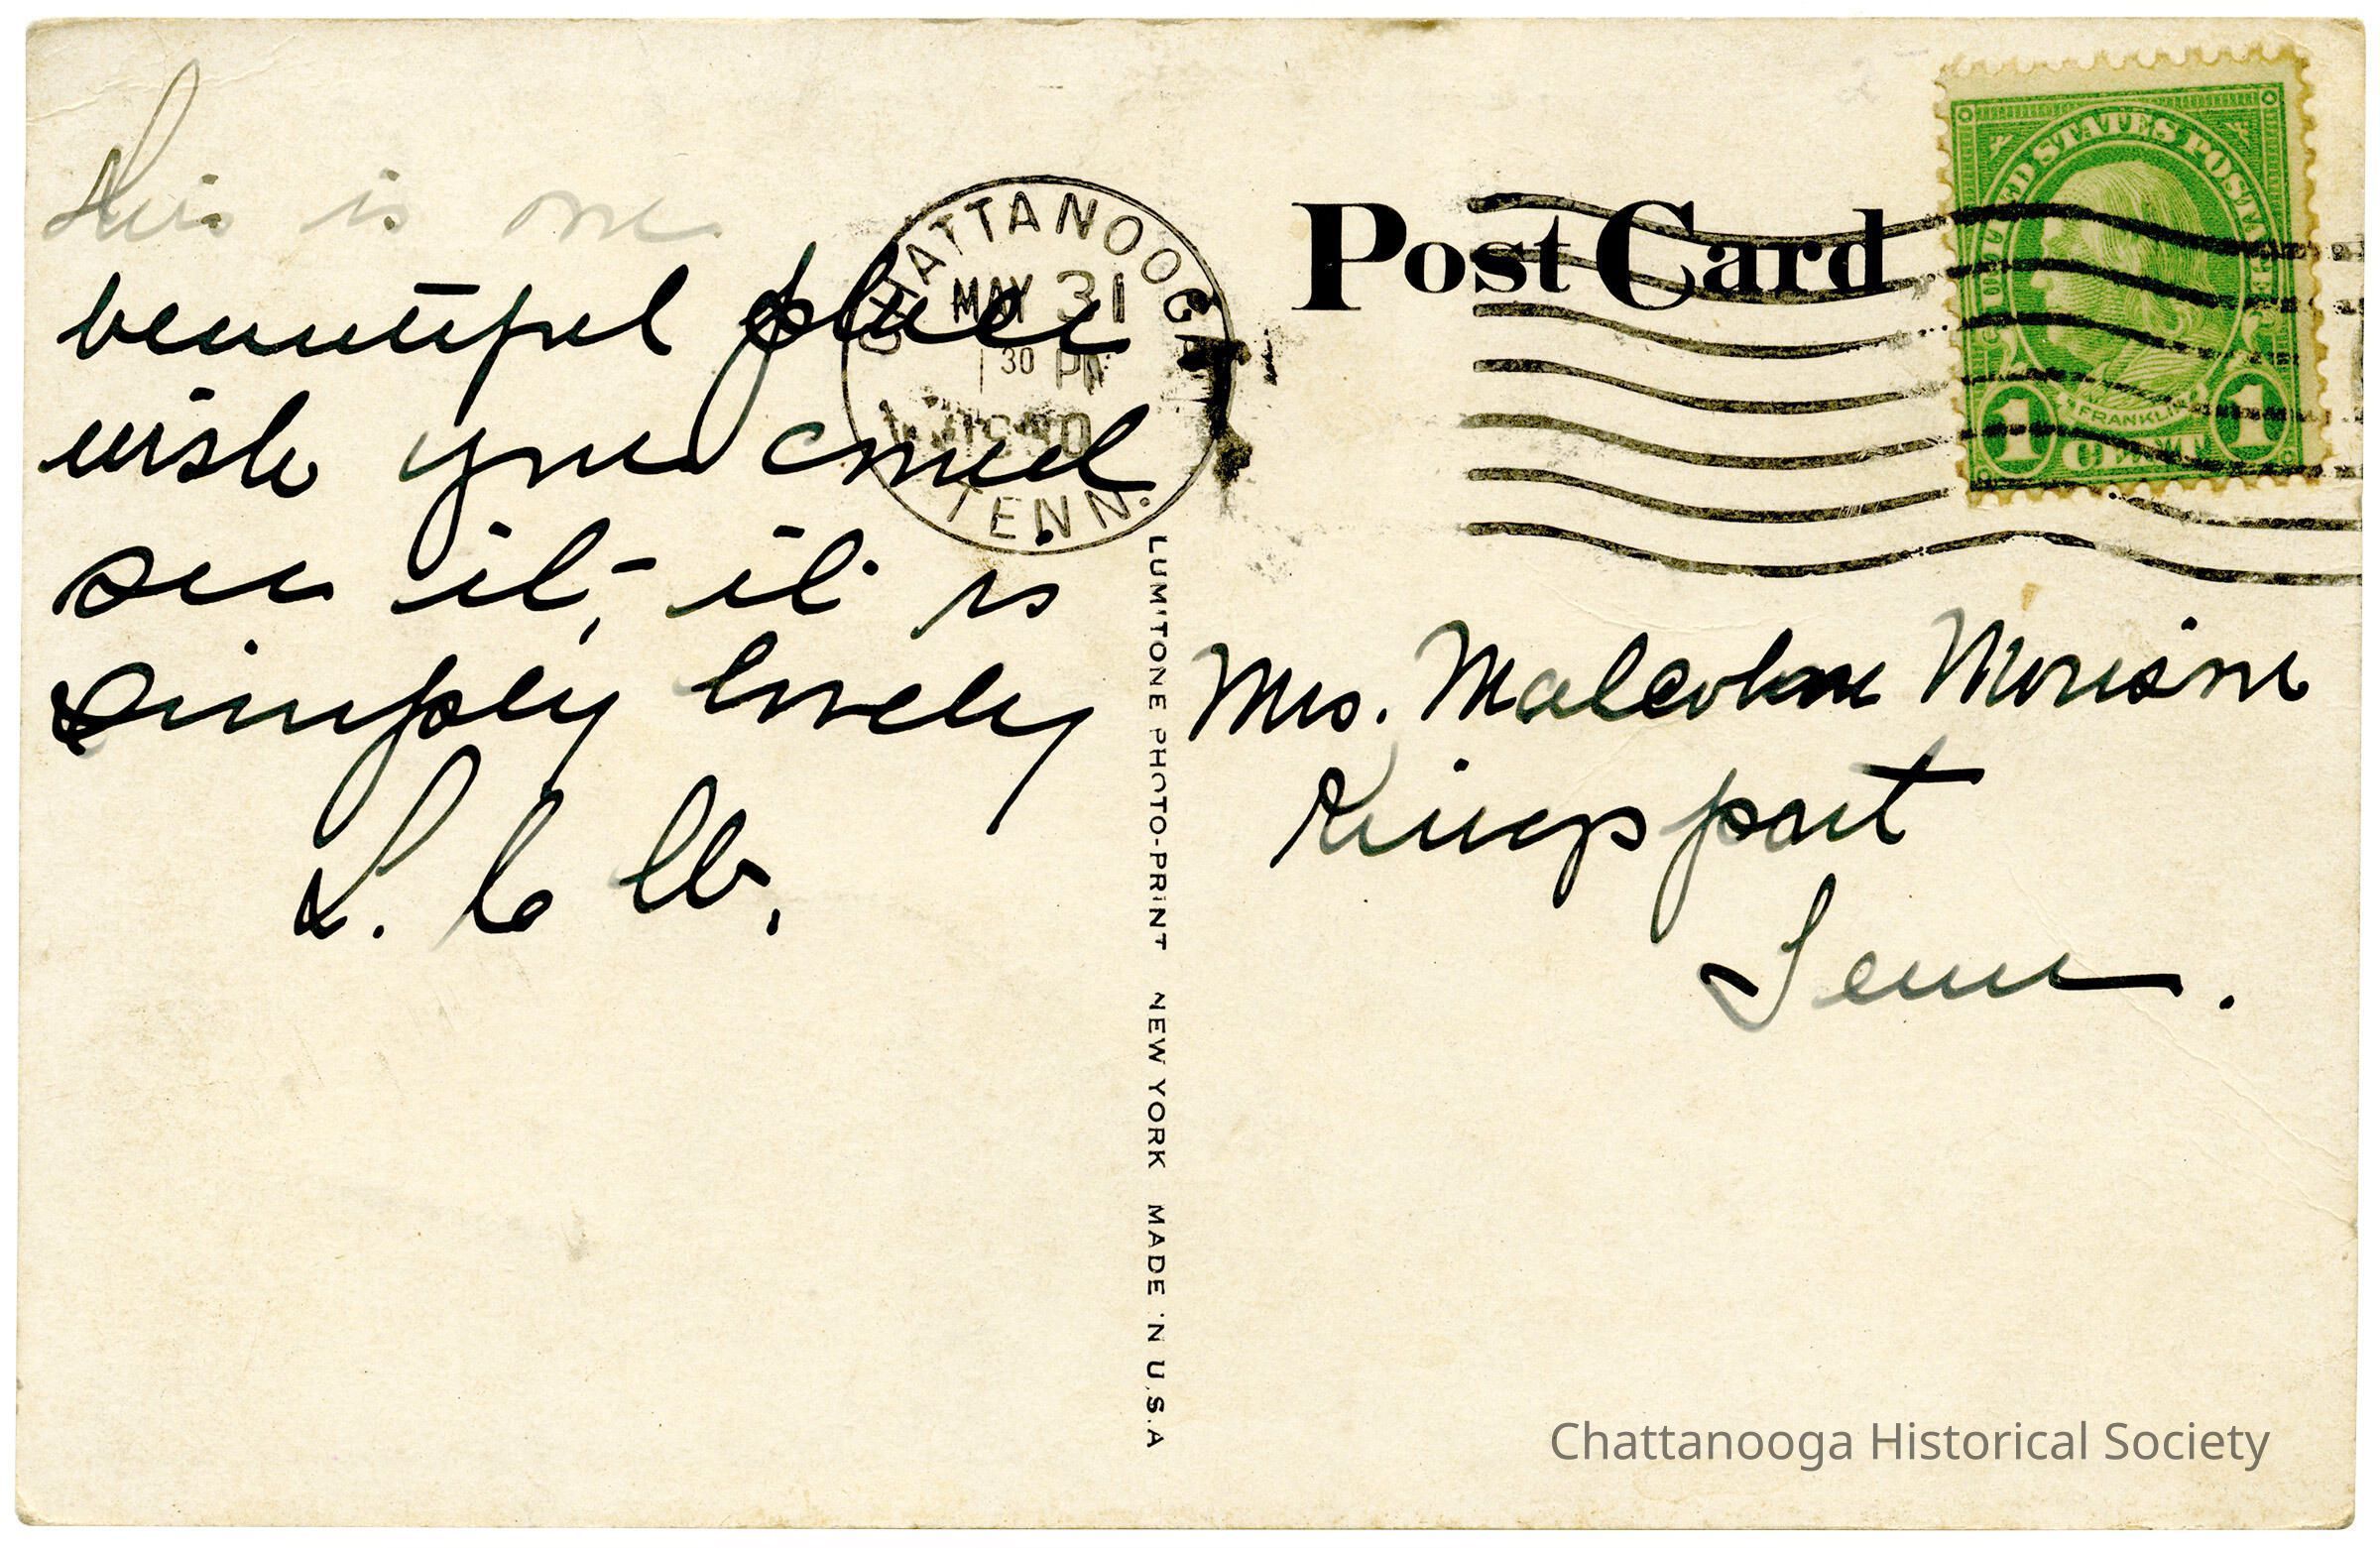 this is one
beautiful place
wish you could
see it, it is
simply lovely
L.
CHATTANOOGA
MAY 31
1 30 PM
TENN.
Post Card
UNITED STATES POSTAGE
FRANKLIN
1 CENT 1
Mrs. Malcolm
Kingsport
Tenn.
LUMITONE PHOTO-PRINT NEW YORK MADE IN U.S.A
Chattanooga Historical Society